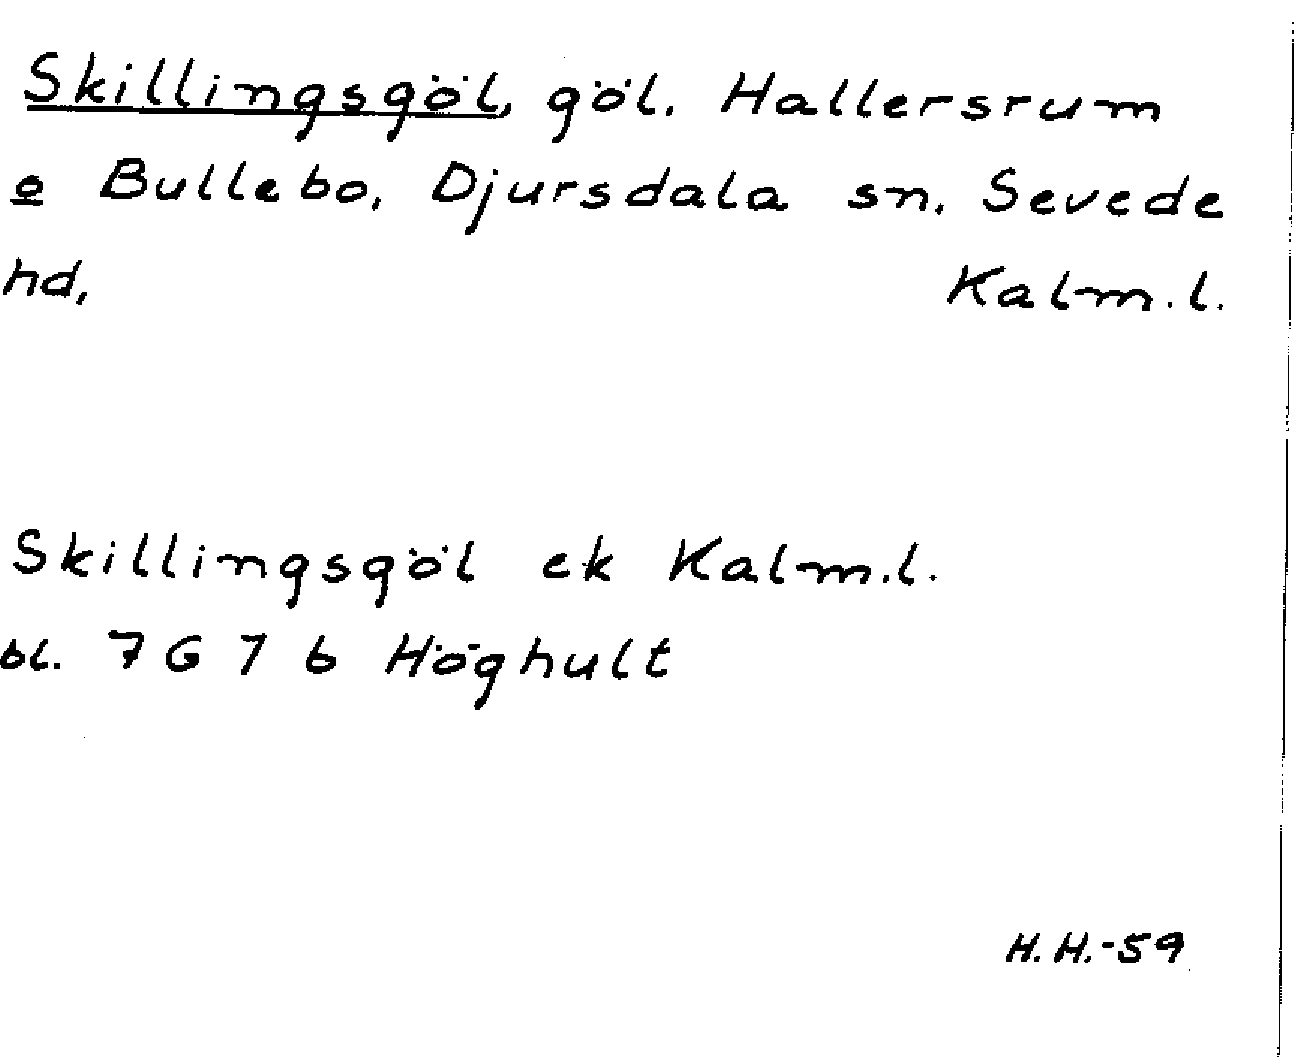 Skillingsgöl, göl. Hallersrum
o Bullebo, Djursdala sn. Sevede
hd, Kalm.l.
Skillingsgöl ek Kalm.l.
bl. 7 G 7 b Höghult
H.H.-59